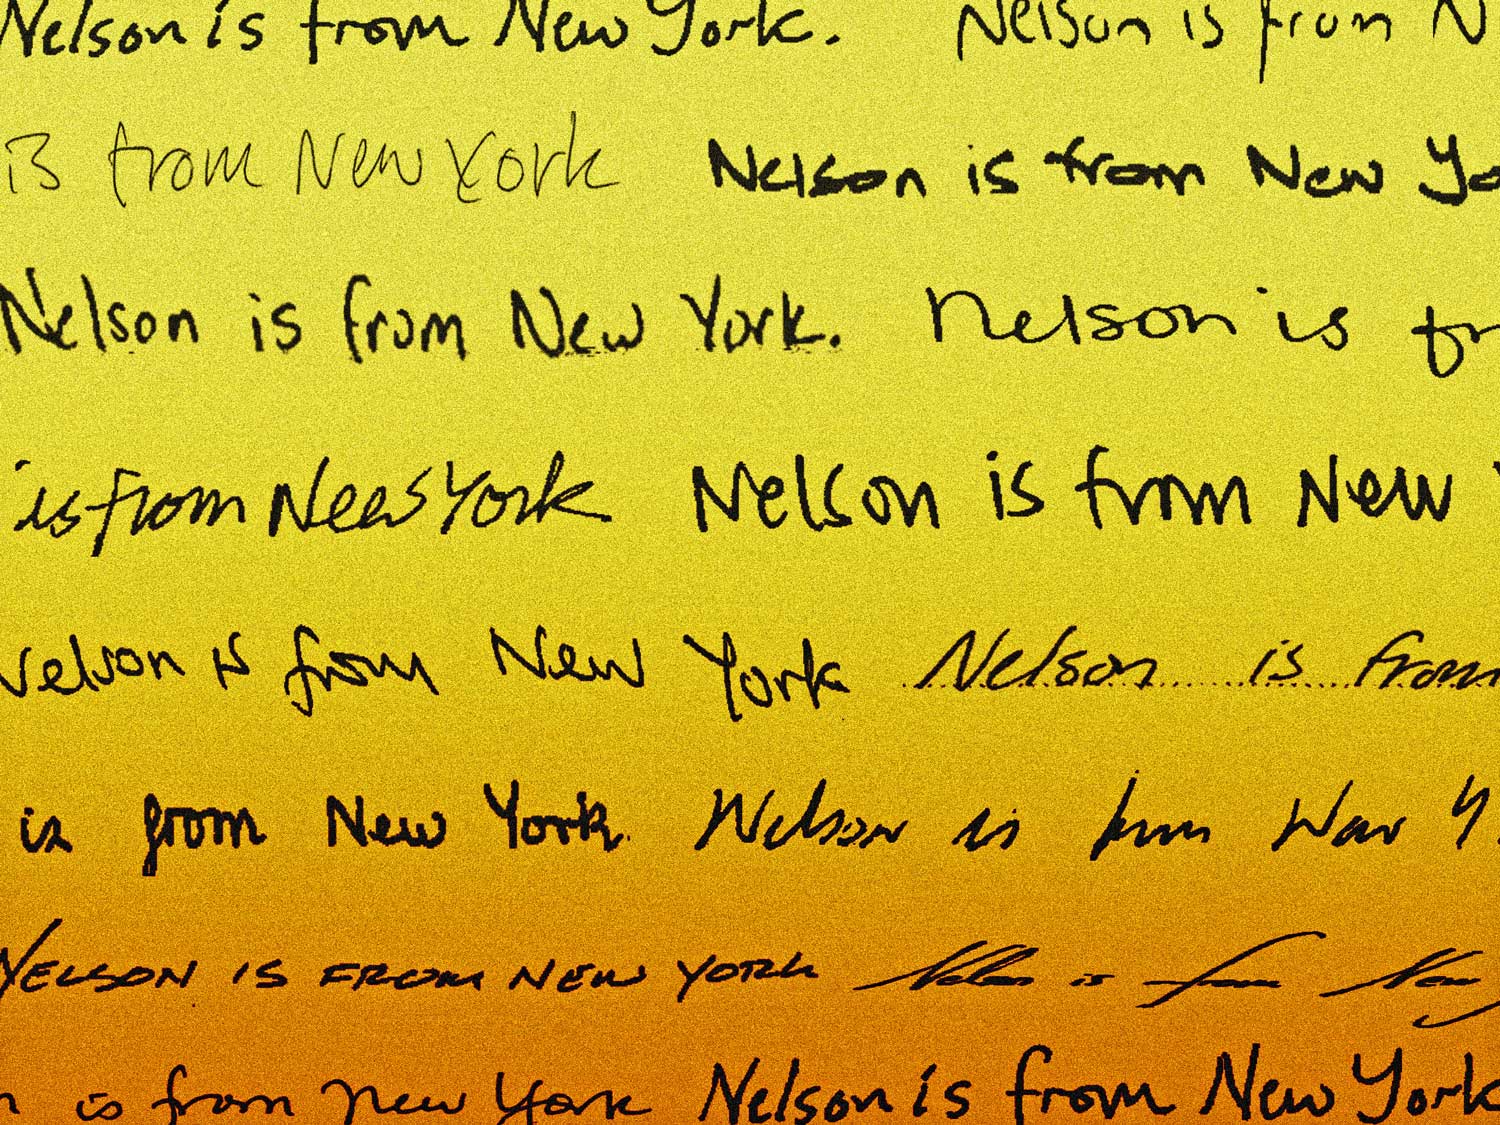 Nelson is from New York. Nelson is from N
is from New York Nelson is from New Yo
Nelson is from New York. Nelson is fr
is from New York Nelson is from New
Nelson is from New York Nelson is from
is from New York. Nelson is from New Y
NELSON IS FROM NEW YORK Nelson is from New
n is from New York Nelson is from New York